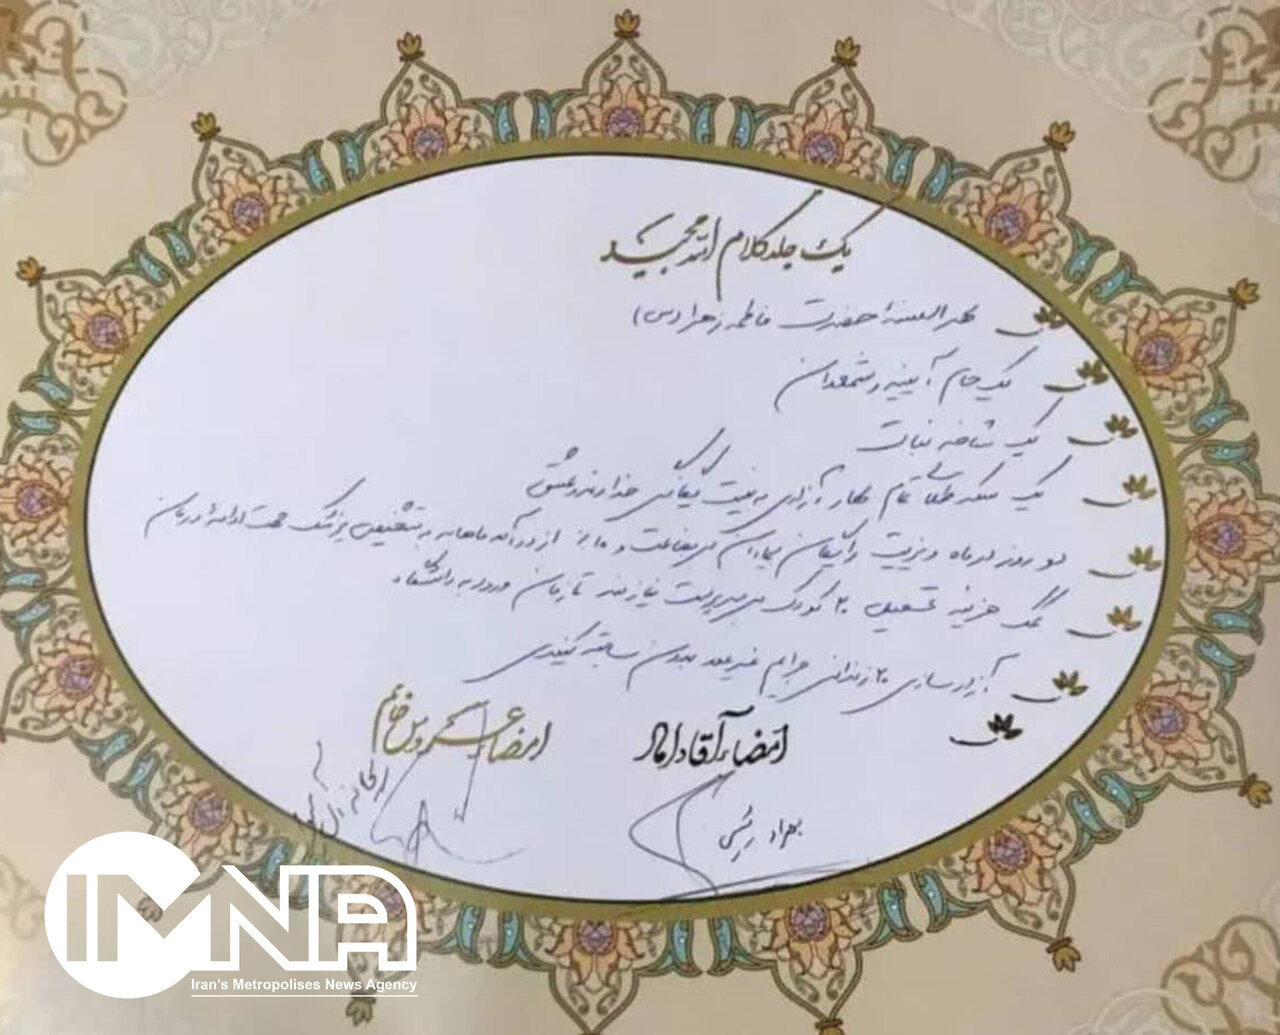 یک جلد کلام الله مجید
مهرالسنهٔ حضرت فاطمه زهرا (س)
یک جام آیینه و شمعدان
یک شاخه نبات
یک سکه طلای تمام بهار آزادی به نیت یگانگی خداوند و عشق
دو روز در ماه ویزیت رایگان بیماران کم بضاعت و ۱۰٪ از درآمد ماهانه به تشخیص پزشک جهت ادامهٔ درمان
کمک هزینه تحصیل ۲۰ کودک بی سرپرست نیازمند تا زمان ورود به دانشگاه
آزادسازی ۲۰ زندانی جرایم غیرعمد بدون سابقه کیفری
امضاء آقا داماد
امضاء عروس خانم
بهراد رئیسی
IMNA
Iran's Metropolises News Agency